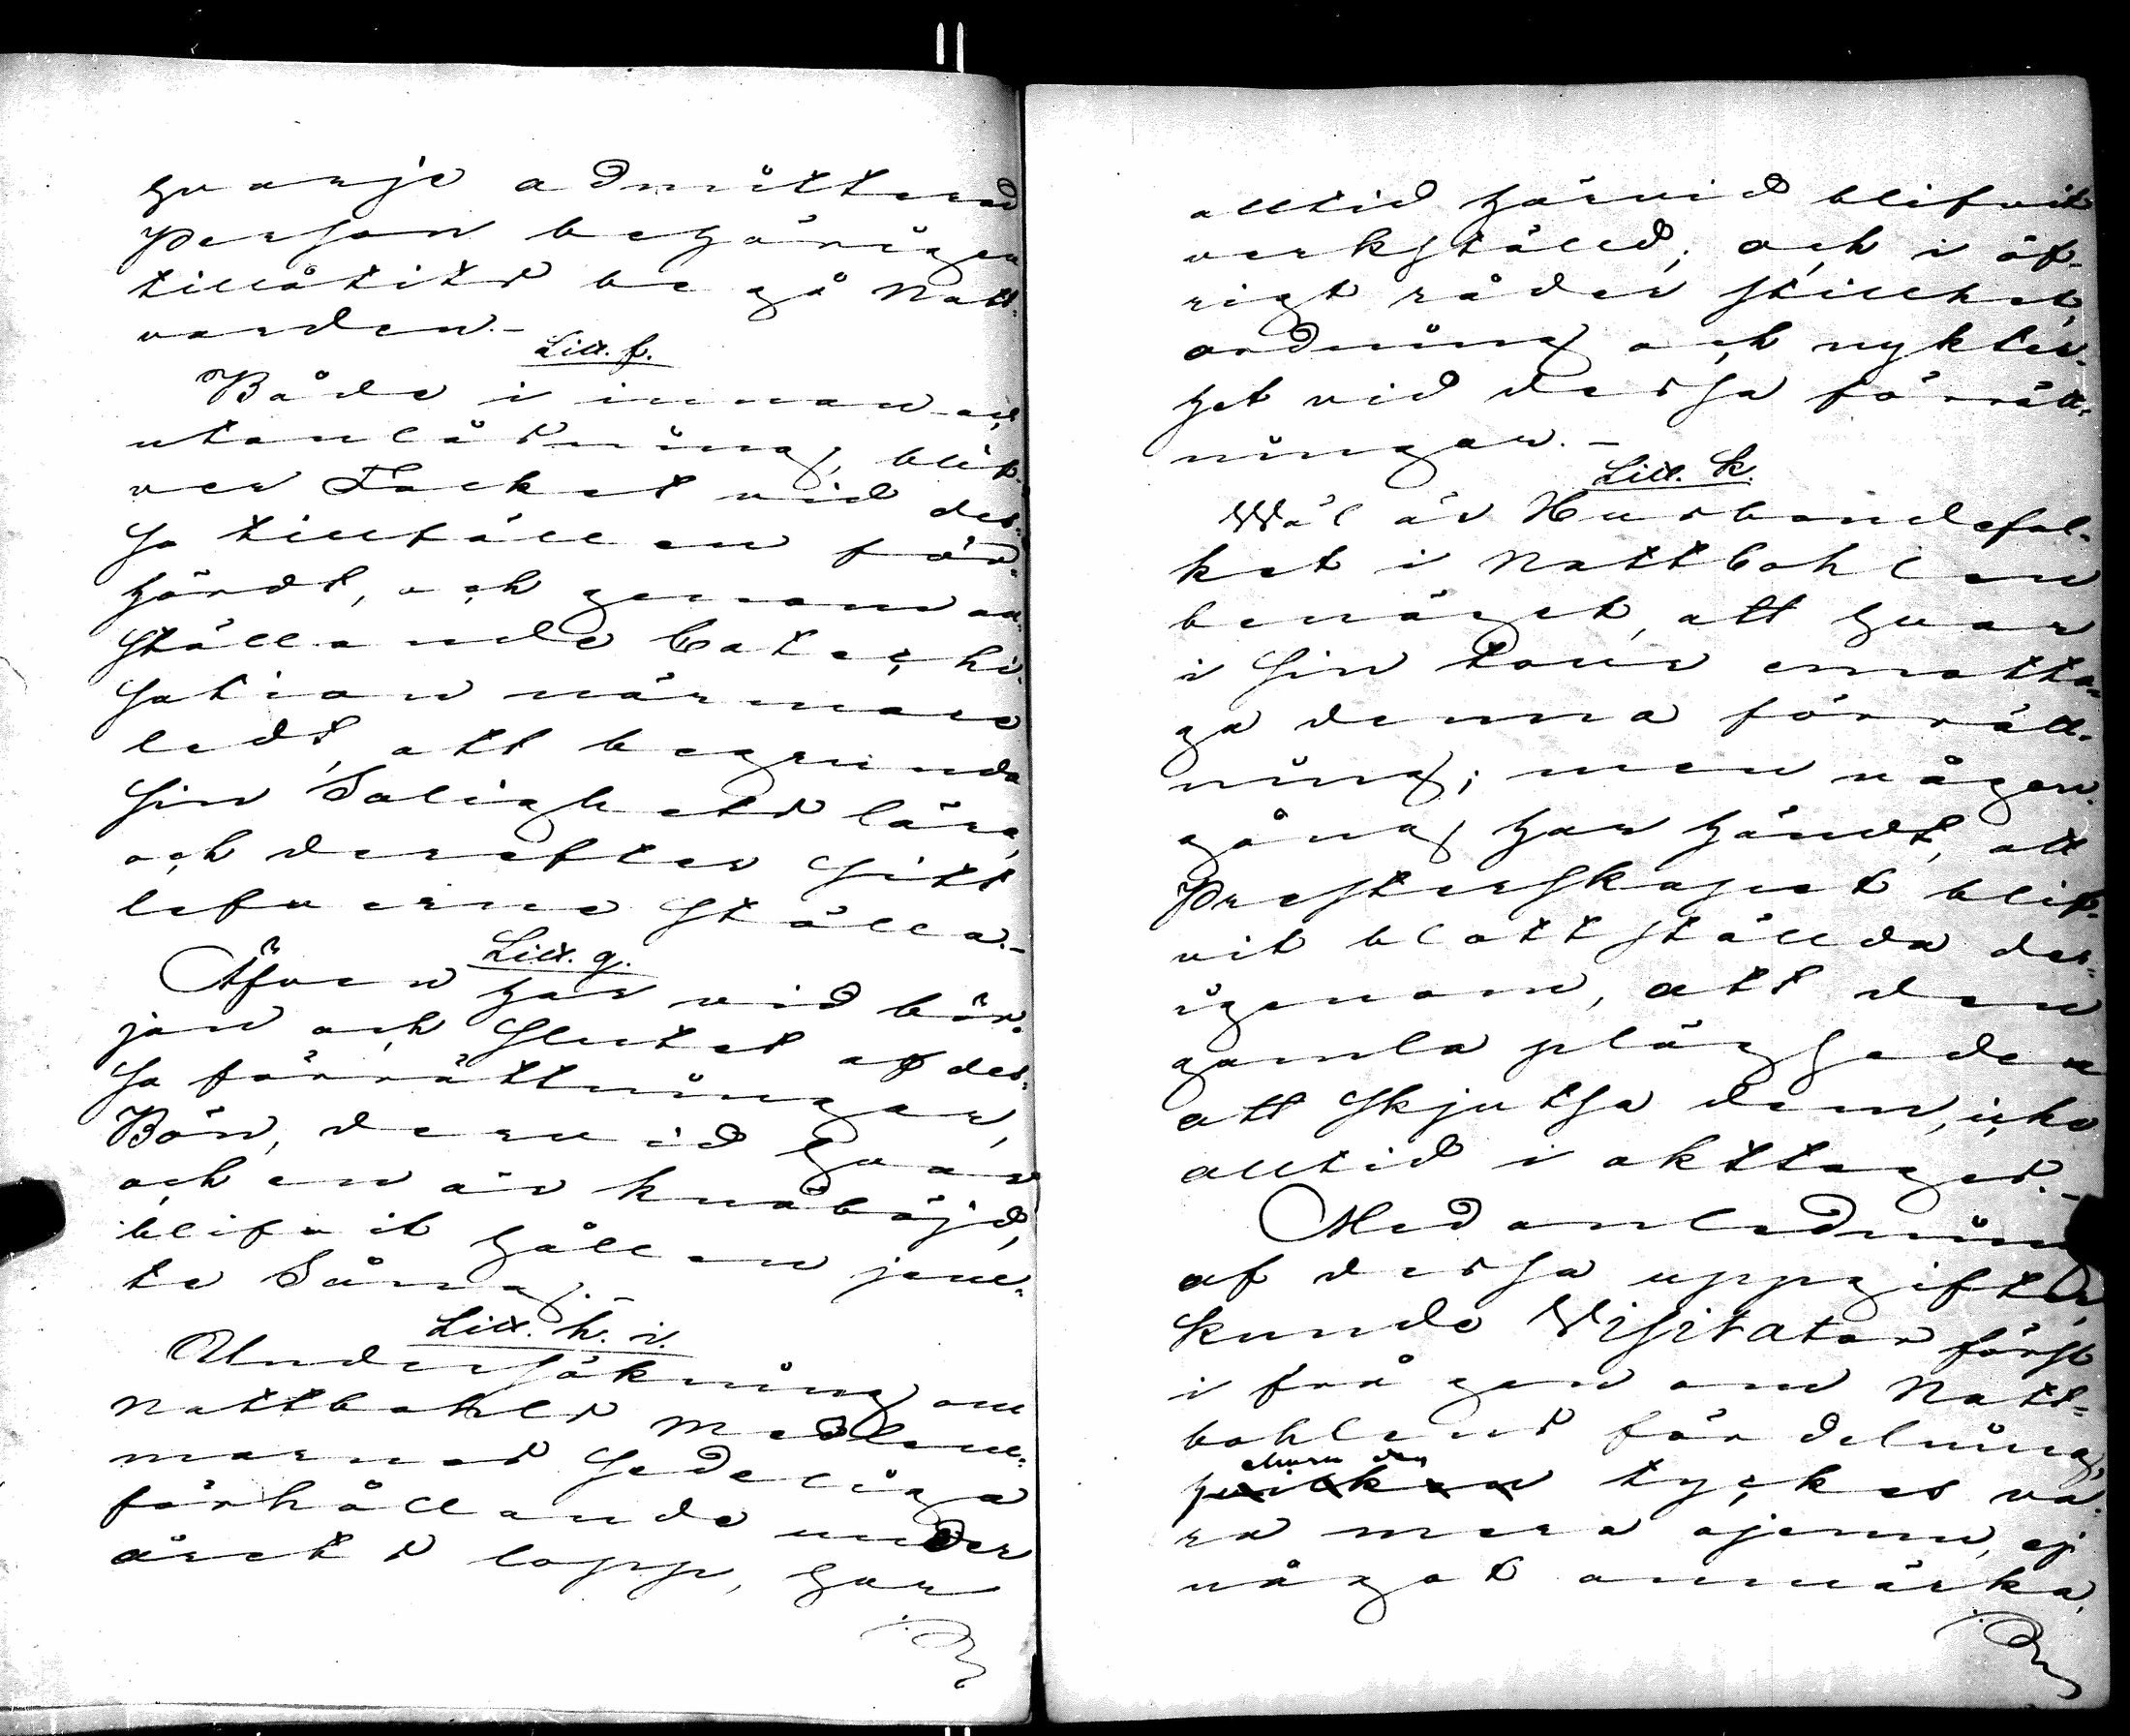 hvarje admitterad
Person behörigen
tillåtits begå Natt-
varden.-
Litt. f.
Både i innan och
utanläsning, blif-
ver Folket vid des-
sa tillfällen för-
hördt, och genom an-
ställande Catechi-
sation närmare
ledt, att begrunda
sin Salighets lära,
och derefter sitt
lefverne ställa.-
Litt. g.
Äfven har vid bör-
jan och slutet af des-
sa förrättningar,
Bön, dervid hvar
och en är knäböjd,
blifvit hållen jem-
te Sång.-
Litt. h. i.
Undersökning om
Nattbohls Medlem-
marnes sedeliga
förhållande under
årets lopp, har
alltid härvid blifvit
verkställd; och i öf-
rigt råder stillhet,
ordning och nykter-
het vid dessa förrätt-
ningar.-
Litt. k.
Wäl är Husbondefol-
ket i Nattbohlen
benäget, att hvar
i sin tour emotta-
ga denna förrätt-
ning; men någon
gång har händt, att
Presterskapet blif-
vit blottställda der-
igenom, att den
gamla plägseden
att skjutsa dem, icke
alltid i akttages.-
Med anledning
af dessa uppgifter,
kunde Visitator först
i frågan om Natt-
bohlens fördelning,
ehuru den
hvilken tyckes va-
ra mera ojemn, ej
något anmärka.